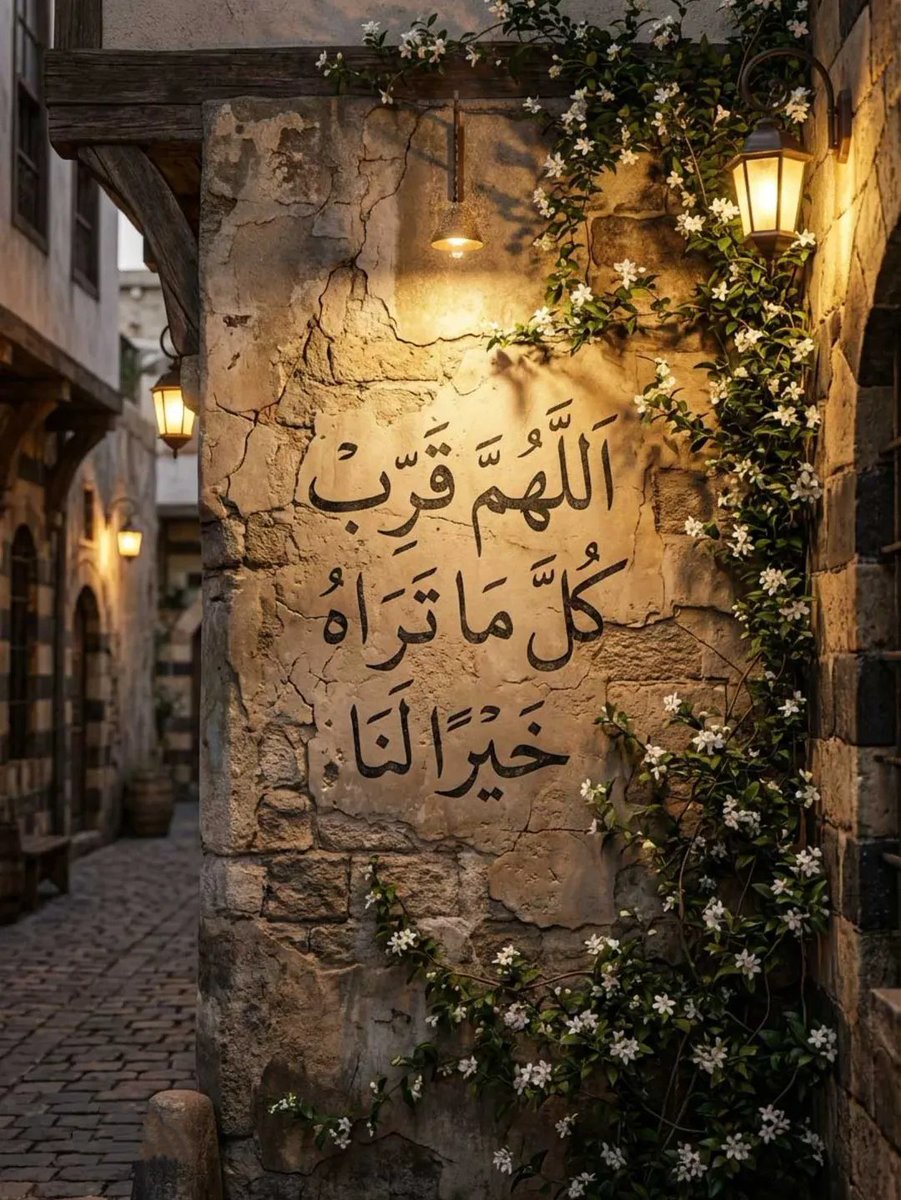 اَللَّهُمَّ قَرِّبْ
كُلَّ مَا تَرَاهُ
خَيْرًا لَنَا